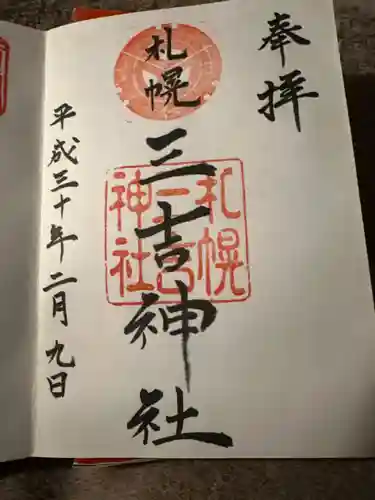 奉拝
札幌
三吉神社
札幌
三吉
神社
平成三十年二月九日